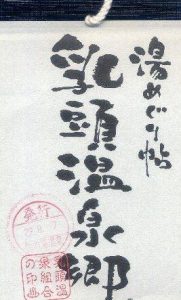 湯めぐり帖
乳頭温泉郷
発行
乳頭温
泉組合
の印